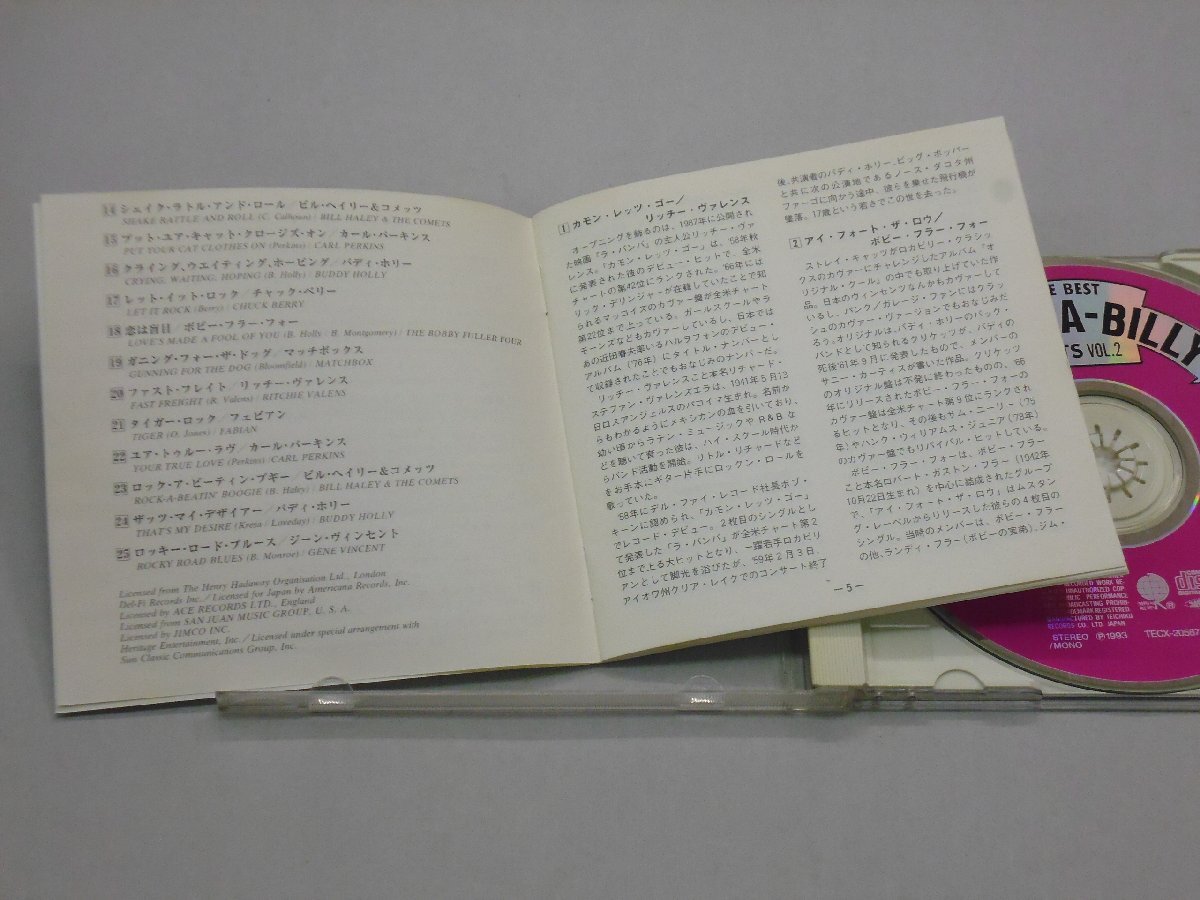 14 シェイク・ラトル・アンド・ロール／ビル・ヘイリー&コメッツ
SHAKE RATTLE AND ROLL (C. Calhoun) / BILL HALEY & THE COMETS
15 プット・ユア・キャット・クローズ・オン／カール・パーキンス
PUT YOUR CAT CLOTHES ON (Perkins) / CARL PERKINS
16 クライング、ウエイティング、ホーピング／バディ・ホリー
CRYING, WAITING, HOPING (B. Holly) / BUDDY HOLLY
17 レット・イット・ロック／チャック・ベリー
LET IT ROCK (Berry) / CHUCK BERRY
18 恋は盲目／ボビー・フラー・フォー
LOVE'S MADE A FOOL OF YOU (B. Holly / B. Montgomery) / THE BOBBY FULLER FOUR
19 ガニング・フォー・ザ・ドッグ／マッチボックス
GUNNING FOR THE DOG (Bloomfield) / MATCHBOX
20 ファスト・フレイト／リッチー・ヴァレンス
FAST FREIGHT (R. Valens) / RITCHIE VALENS
21 タイガー・ロック／フェビアン
TIGER (O. Jones) / FABIAN
22 ユア・トゥルー・ラヴ／カール・パーキンス
YOUR TRUE LOVE (Perkins) / CARL PERKINS
23 ロック・ア・ビーティン・ブギー／ビル・ヘイリー&コメッツ
ROCK-A-BEATIN' BOOGIE (B. Haley) / BILL HALEY & THE COMETS
24 ザッツ・マイ・デザイアー／バディ・ホリー
THAT'S MY DESIRE (Kresa / Loveday) / BUDDY HOLLY
25 ロッキー・ロード・ブルース／ジーン・ヴィンセント
ROCKY ROAD BLUES (B. Monroe) / GENE VINCENT
Licensed from The Henry Hadaway Organisation Ltd., London
Del-Fi Records Inc. / Licensed for Japan by Americana Records, Inc.
Licensed by ACE RECORDS LTD., England
Licensed from SAN JUAN MUSIC GROUP, U. S. A.
Licensed by JIMCO INC.
Heritage Entertainment, Inc. / Licensed under special arrangement with
Sun Classic Communications Group, Inc.
1 カモン・レッツ・ゴー／
リッチー・ヴァレンス
オープニングを飾るのは、1987年に公開され
た映画『ラ・バンバ』の主人公リッチー・ヴァ
レンス。「カモン・レッツ・ゴー」は、'58年秋
に発表された彼のデビュー・ヒットで、全米
チャートの第42位にランクされた。'66年には
リック・デリンジャーが在籍していたことで知
られるマッコイズのカヴァー盤が全米チャート
第22位まで上っている。ガールスクールやラ
モーンズなどもカヴァーしているし、日本では
あの近田春夫率いるハルヲフォンのデビュー・
アルバム（'76年）にタイトル・ナンバーとし
て収録されたことでもおなじみのナンバーだ。
リッチー・ヴァレンスこと本名リチャード・
ステファン・ヴァレンズエラは、1941年5月13
日ロスアンジェルスのパコイマ生まれ。名前か
らもわかるようにメキシカンの血を引いており、
幼い頃からラテン・ミュージックやR&Bな
どを聴いて育った彼は、ハイ・スクール時代か
らバンド活動を開始。リトル・リチャードなど
をお手本にギター片手にロックン・ロールを
歌っていた。
'58年にデル・ファイ・レコード社長ボブ・
キーンに認められ、「カモン・レッツ・ゴー」
でレコード・デビュー。2枚目のシングルとし
て発表した「ラ・バンバ」が全米チャート第2
位まで上る大ヒットとなり、一躍若手ロカビリ
アンとして脚光を浴びたが、'59年2月3日、
アイオワ州クリア・レイクでのコンサート終了
後、共演者のバディ・ホリー、ビッグ・ボッパー
と共に次の公演地であるノース・ダコタ州
ファーゴに向かう途中、彼らを乗せた飛行機が
墜落。17歳という若さでこの世を去った。
2 アイ・フォート・ザ・ロウ／
ボビー・フラー・フォー
ストレイ・キャッツがロカビリー・クラシッ
クスのカヴァーにチャレンジしたアルバム『オ
リジナル・クール』の中でも取り上げていた作
品。日本のヴィンセンツなんかもカヴァーして
いるし、パンク／ガレージ・ファンにはクラッ
シュのカヴァー・ヴァージョンでもおなじみだ
ろう。オリジナルは、バディ・ホリーのバック・
バンドとして知られるクリケッツが、バディの
死後'61年9月に発表したもので、メンバーの
サニー・カーティスが書いた作品。クリケッツ
のオリジナル盤は不発に終わったものの、'66
年にリリースされたボビー・フラー・フォーの
カヴァー盤は全米チャート第9位にランクされ
るヒットとなり、その後もサム・ニーリー（'75
年）やハンク・ウィリアムス・ジュニア（'78年）
のカヴァー盤でもリバイバル・ヒットしている。
ボビー・フラー・フォーは、ボビー・フラー
こと本名ロバート・ガストン・フラー（1942年
10月22日生まれ）を中心に結成されたグループ
で、「アイ・フォート・ザ・ロウ」はムスタン
グ・レーベルからリリースした彼らの4枚目の
シングル。当時のメンバーは、ボビー・フラー
の他、ランディ・フラー（ボビーの実弟）、ジム・
—5—
E BEST
A-BILLY
TS VOL.2
RECORDED WORK RE-
NAUTHORIZED COP
BLIC PERFORMANCE
OADCASTING PROHIB-
DEMARK REGISTERED.
MANUFACTURED BY TEICHIKU
RECORDS CO. LTD JAPAN
STEREO
/MONO
Ⓟ1993
TECX-20567